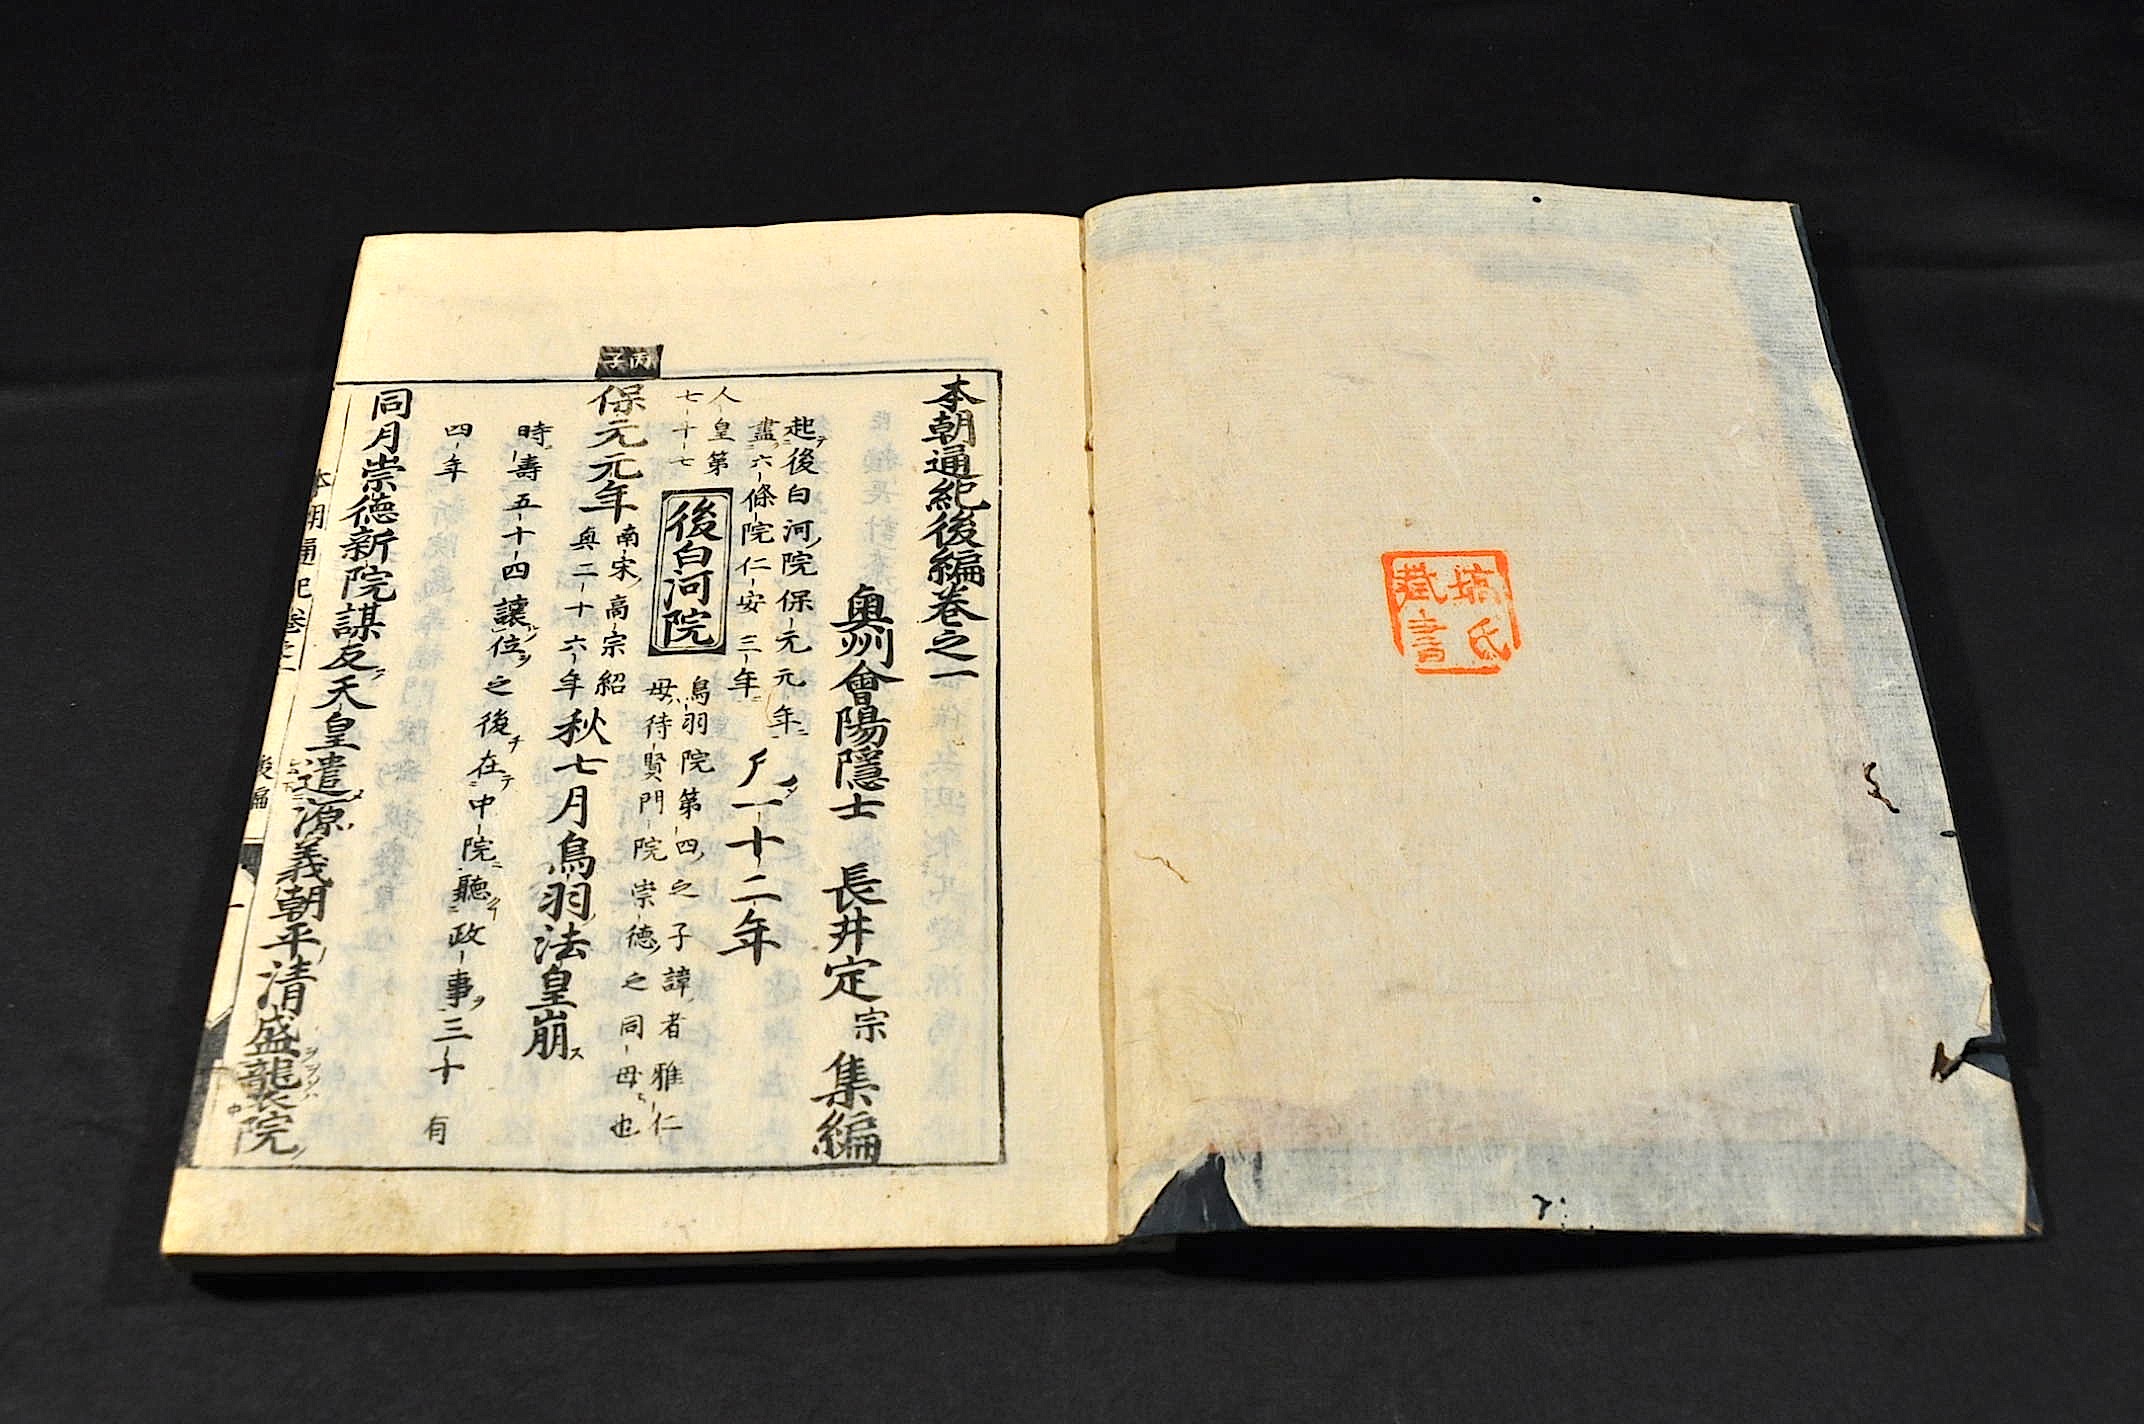 塙氏
蔵書
本朝通紀後編巻之一
奥州會陽隱士　長井定宗　集編
起テ後白河ノ院保元元年ニ
盡ク六條院仁安三年ニ
凡ソ一十二年
人皇第
七十七
後白河院
鳥羽院第四ノ之子諱ハ者雅仁
母ハ待賢門院崇德ノ之同母也
丙子
保元元年
南宋ノ高宗紹
興二十六年
秋七月鳥羽ノ法皇崩ス
時ニ壽五十四讓位ノ之後在テ中院ニ聽政事ヲ三十有
四年
同月崇德新院謀反ス天皇遣源ノ義朝平ノ清盛襲院ノ
本朝通紀巻之一
後編